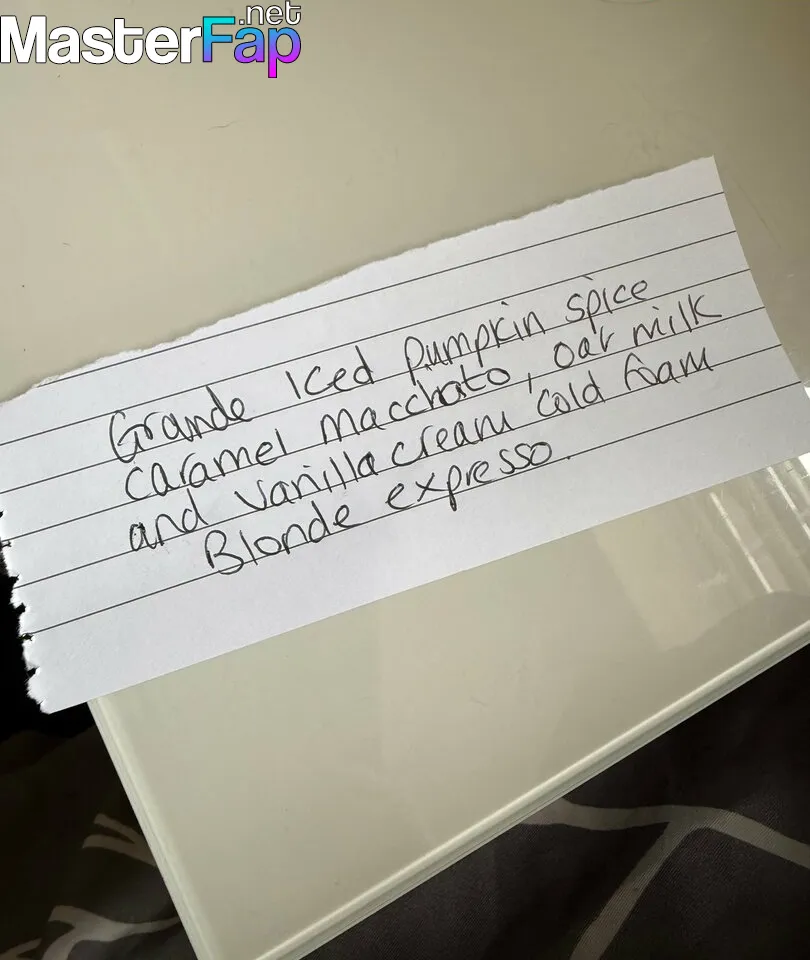 MasterFap.net
Grande Iced pumpkin spice
caramel macchato, oat milk
and vanilla cream cold foam
Blonde expresso.